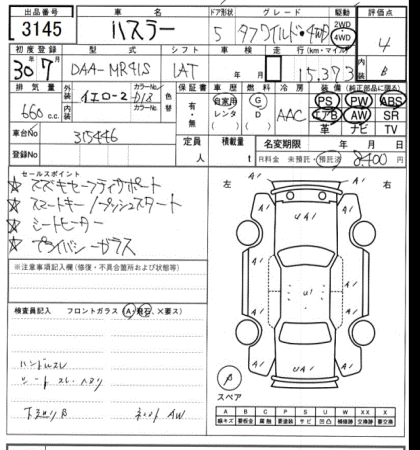 出品番号 車名 ドア形状 グレード 駆動 評価点
3145 ハスラー 5 タフワイルド・4WD 2WD 4WD 4
初度登録 型式 シフト 車検 走行(km・マイル) B
30年7月 DAA-MR41S IAT 年 月 15,373
排気量 外装 カラーNo. 色替 保証書 車歴 燃料 冷房 装備(純正部品に限る)
660c.c. イエロー2 D18 内装 カラーNo. 有・無 自家用 レンタ G D AAC PS PW ABS
エアB AW SR
革 ナビ TV
車台No 315446 定員 人 積載量 t 名変期限 年 月
登録No R料金 未預託・預託済 8,400円
セールスポイント
☆ スズキセーフティサポート
☆ スマートキー/プッシュスタート
☆ シートヒーター
☆ プライバシーガラス
左 右
※注意事項記入欄(修復・不具合箇所および状態等)
検査員記入 フロントガラス(A・飛石、×要ス)
ハンドルスレ
下まわりB AW
A1 UA1 A1
A1 A1
A1 U1 A1
A1 UA1 A1
スペア
A B C P S U W X XX
線キズ 要板金 腐蝕 要塗装 サビ 凹凸 補修跡 要交換